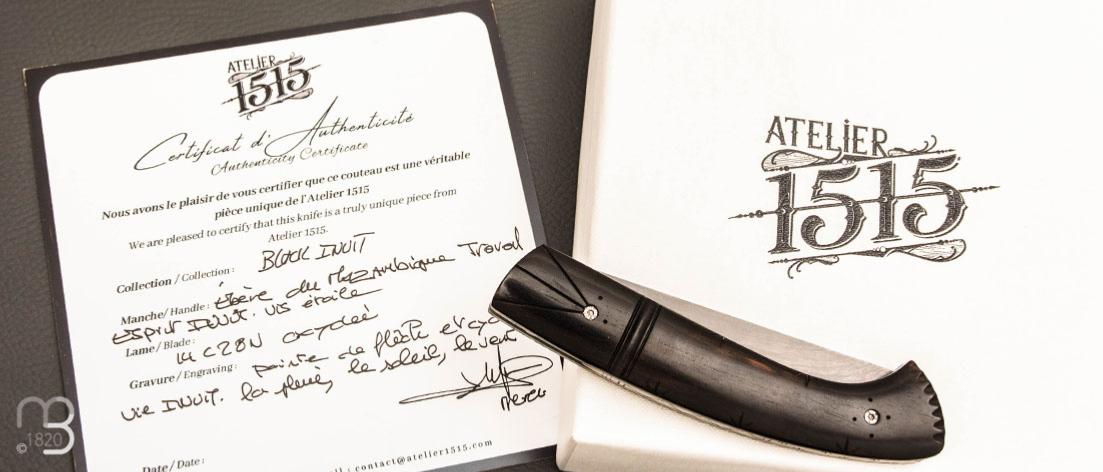 ATELIER
1515
Certificat d'Authenticité
Authenticity Certificate
Nous avons le plaisir de vous certifier que ce couteau est une véritable
pièce unique de l'Atelier 1515
We are pleased to certify that this knife is a truly unique piece from
Atelier 1515.
Collection / Collection : BLACK INUIT
Manche / Handle : Ébène du Mozambique Travail
Esprit INUIT. vis étoile
Lame / Blade : 14C28N
Gravure / Engraving : Pointe de flèche et
vie INUIT. la pluie, le soleil, le vent
Merci
Date / Date :
: contact@atelier1515.com
ATELIER
1515
© 1820